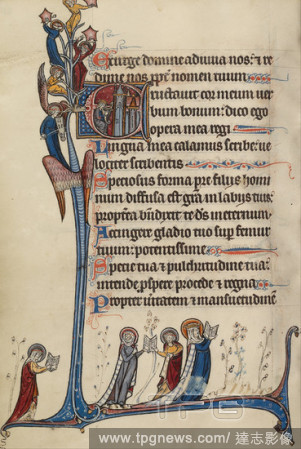 Exurge domine adiuva nos: et re
dime nos ppt nomen tuum
Eructavit cor meum ver
bum bonum: dico ego
opera mea regi
Lingua mea calamus scribe: ve
lociter scribentis
Speciosus forma pre filiis homi
num diffusa est gra in labiis tuis:
propterea benedixit te ds in eternum
Accingere gladio tuo sup femur
tuum: potentissime
Specie tua et pulchritudine tua:
intende pspere procede et regna
Propter veritatem et mansuetudine
TPG
www.tpgnews.com/達志影像